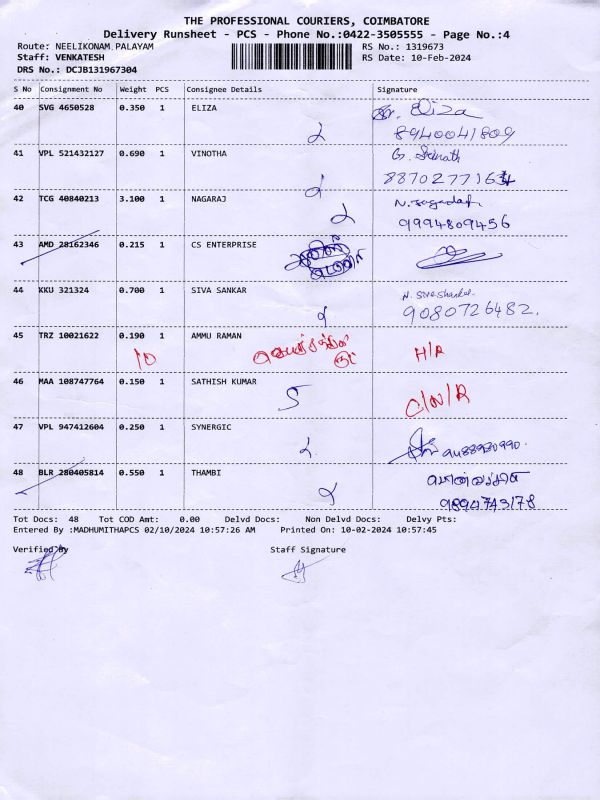 THE PROFESSIONAL COURIERS, COIMBATORE
Delivery Runsheet - PCS - Phone No.:0422-3505555 - Page No.:4
Route: NEELIKONAM PALAYAM RS No.: 1319673
Staff: VENKATESH RS Date: 10-Feb-2024
DRS No.: DCJB131967304
S No Consignment No Weight PCS Consignee Details Signature
40 SVG 4650528 0.350 1 ELIZA Eliza
8940041809
41 VPL 521432127 0.690 1 VINOTHA G.
42 TCG 40840213 3.100 1 NAGARAJ
9994809456
43 AMD 28162346 0.215 1 CS ENTERPRISE
44 KKU 321324 0.700 1 SIVA SANKAR N. Siva Shankar
9080726482.
45 TRZ 10021622 0.190 1 AMMU RAMAN
10 H/R
46 MAA 108747764 0.150 1 SATHISH KUMAR
S C/N/R
47 VPL 947412604 0.250 1 SYNERGIC
48 BLR 280405814 0.550 1 THAMBI
9894743178
Tot Docs: 48 Tot COD Amt: 0.00 Delvd Docs: Non Delvd Docs: Delvy Pts:
Entered By :MADHUMITHAPCS 02/10/2024 10:57:26 AM Printed On: 10-02-2024 10:57:45
Verified By Staff Signature